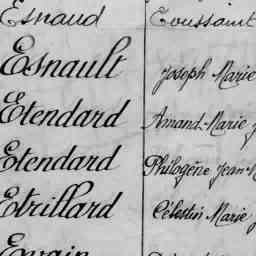 Esnaud Toussaint
Esnault Joseph Marie
Etendard Amand-Marie J
Etendard Philogène Jean-M
Etrillard Célestin Marie J
Evain